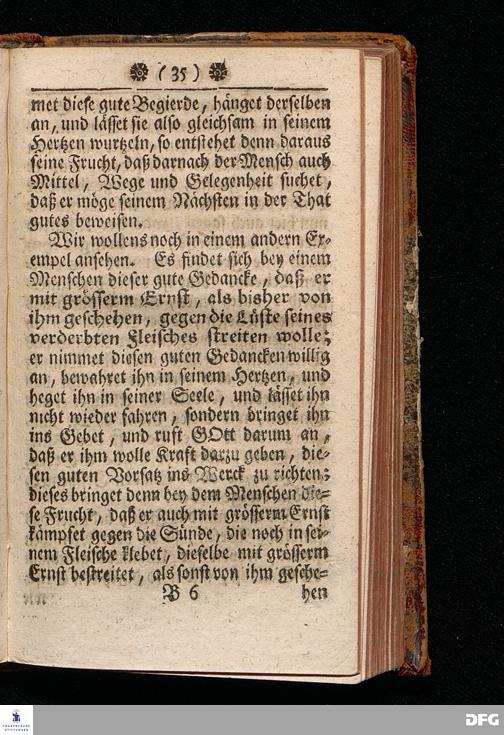 (35)
met diese gute Begierde, hänget derselben
an, und lässet sie also gleichsam in seinem
Hertzen wurtzeln, so entstehet denn daraus
seine Frucht, daß darnach der Mensch auch
Mittel, Wege und Gelegenheit suchet,
daß er möge seinem Nächsten in der That
gutes beweisen.
Wir wollens noch in einem andern Ex-
empel ansehen. Es findet sich bey einem
Menschen dieser gute Gedancke, daß er
mit grösserm Ernst, als bisher von
ihm geschehen, gegen die Lüste seines
verderbten Fleisches streiten wolle;
er nimmet diesen guten Gedancken willig
an, bewahret ihn in seinem Hertzen, und
heget ihn in seiner Seele, und lässet ihn
nicht wieder fahren, sondern bringet ihn
ins Gebet, und ruft GOtt darum an,
daß er ihm wolle Kraft darzu geben, die-
sen guten Vorsatz ins Werck zu richten;
dieses bringet denn bey dem Menschen die-
se Frucht, daß er auch mit grösserm Ernst
kämpfet gegen die Sünde, die noch in sei-
nem Fleische klebet, dieselbe mit grösserm
Ernst bestreitet, als sonst von ihm gesche-
B 6 hen
FRANCKESCHE
STIFTUNGEN
DFG